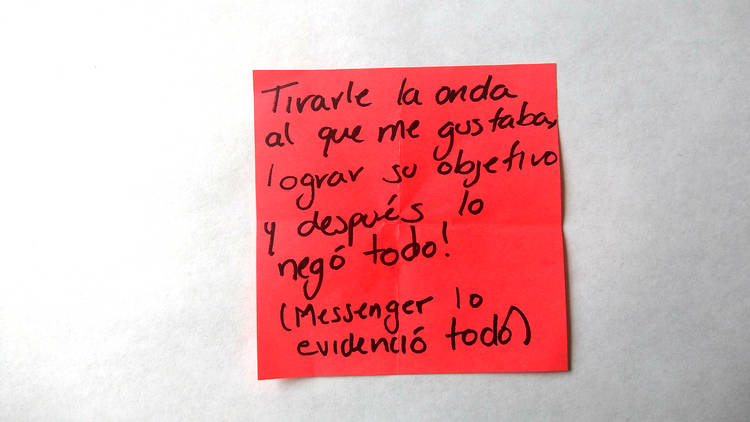 Tirarle la onda
al que me gustaba,
lograr su objetivo
y después lo
negó todo!
(Messenger lo
evidenció todo)